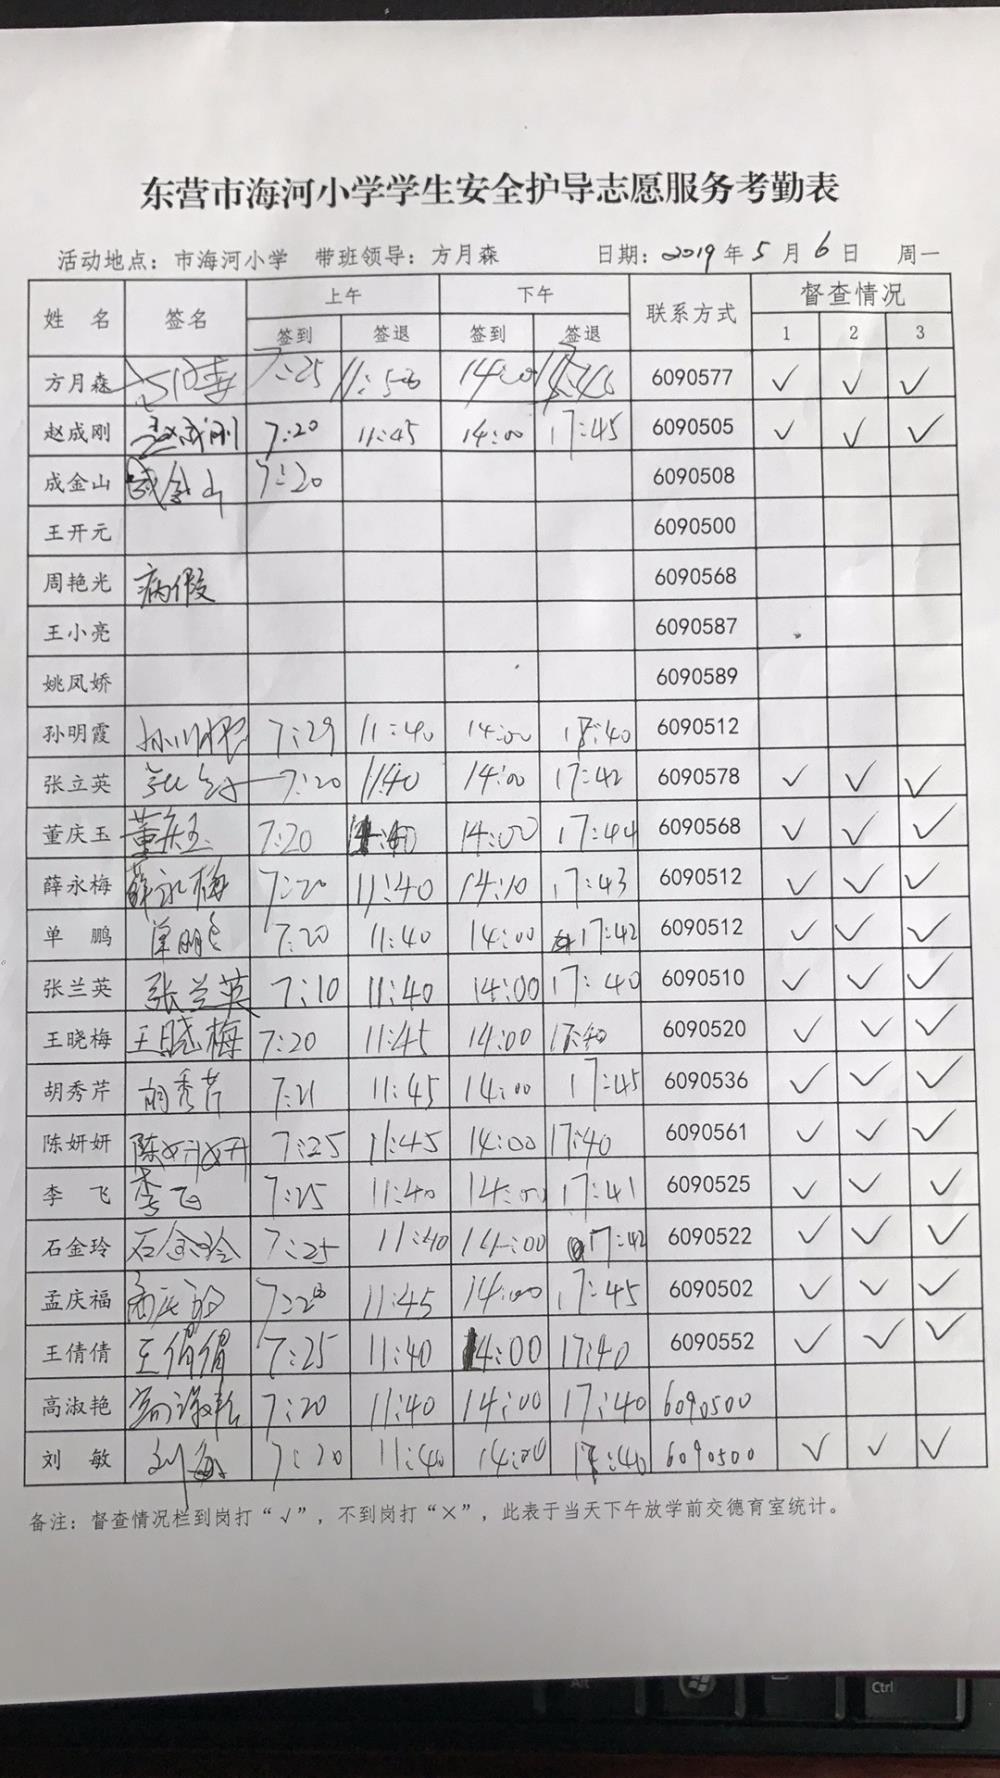 东营市海河小学学生安全护导志愿服务考勤表
活动地点：市海河小学 带班领导：方月森 日期：2019年5月6日 周一
姓 名 签名 上午 下午 联系方式 督查情况
签到 签退 签到 签退 1 2 3
方月森 7:25 11:50 14:00 6090577 ✓ ✓ ✓
赵成刚 赵成刚 7:20 11:45 14:00 17:45 6090505 ✓ ✓ ✓
成金山 成金山 7:20 6090508
王开元 6090500
周艳光 病假 6090568
王小亮 6090587
姚凤娇 6090589
孙明霞 孙明霞 7:29 11:40 14:00 17:40 6090512
张立英 7:20 11:40 14:00 17:42 6090578 ✓ ✓ ✓
董庆玉 董庆玉 7:20 11:40 14:00 17:44 6090568 ✓ ✓ ✓
薛永梅 薛永梅 7:20 11:40 14:10 17:43 6090512 ✓ ✓ ✓
单 鹏 单鹏 7:20 11:40 14:00 17:42 6090512 ✓ ✓ ✓
张兰英 张兰英 7:10 11:40 14:00 17:40 6090510 ✓ ✓ ✓
王晓梅 王晓梅 7:20 11:45 14:00 17:40 6090520 ✓ ✓ ✓
胡秀芹 胡秀芹 7:21 11:45 14:00 17:45 6090536 ✓ ✓ ✓
陈妍妍 陈妍妍 7:25 11:45 14:00 17:40 6090561 ✓ ✓ ✓
李 飞 李飞 7:25 11:40 14:00 17:41 6090525 ✓ ✓ ✓
石金玲 石金玲 7:25 11:40 14:00 17:42 6090522 ✓ ✓ ✓
孟庆福 7:20 11:45 14:00 17:45 6090502 ✓ ✓ ✓
王倩倩 王倩倩 7:25 11:40 14:00 17:40 6090552 ✓ ✓ ✓
高淑艳 高淑艳 7:20 11:40 14:00 17:40 6090500
刘 敏 刘敏 7:20 11:40 14:00 17:40 6090500 ✓ ✓ ✓
备注：督查情况栏到岗打“√”，不到岗打“×”，此表于当天下午放学前交德育室统计。
Alt
Ctrl